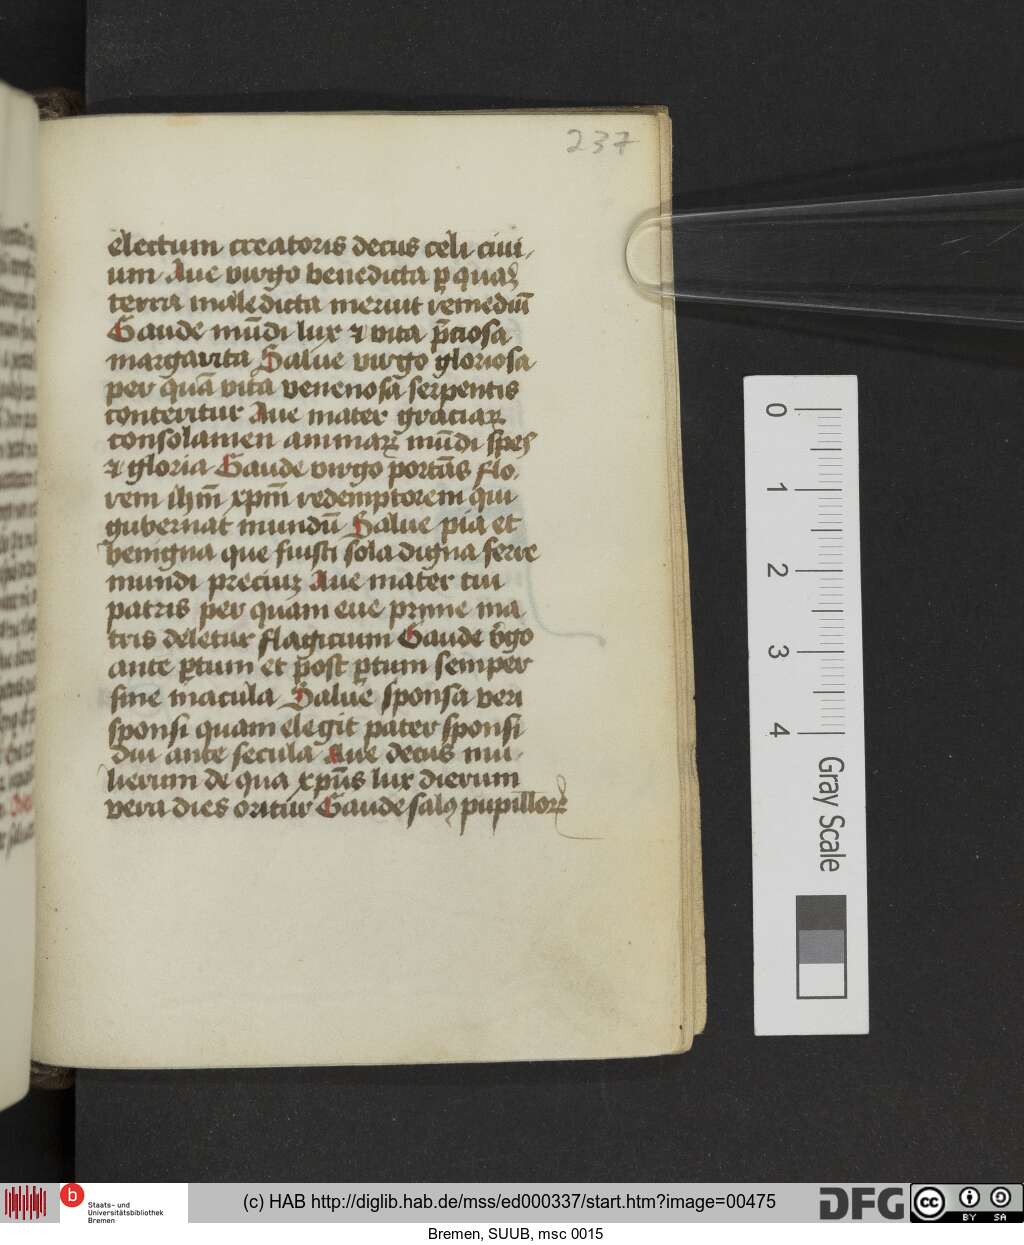 237
electum creatoris decus celi ciui
um Aue virgo benedicta ꝑ quaꝫ
terra maledicta meruit remediū
Gaude mūdi lux ⁊ vita p̄ciosa
margarita Salue virgo gloriosa
per quā vita venenosa serpentis
conteritur Aue mater graciaꝝ
consolamen animaꝝ mūdi spes
⁊ gloria Gaude virgo portās flo
rem ihm̄ xpm̄ redemptorem qui
gubernat mundū Salue pia et
benigna que fuisti sola digna ferre
mundi preciuꝫ Aue mater tui
patris per quam eue prime ma
tris deletur flagicium Gaude v̄go
ante ꝑtum et post ꝑtum semper
sine macula Salue sponsa veri
sponsi quam elegit pater sponsi
dui ante secula Aue decus mu
lierum de qua xpūs lux dierum
vera dies oritur Gaude salꝯ pupilloꝝ
0
1
2
3
4
Gray Scale
b
Staats- und
Universitätsbibliothek
Bremen
(c) HAB http://diglib.hab.de/mss/ed000337/start.htm?image=00475
DFG
cc
BY SA
Bremen, SUUB, msc 0015